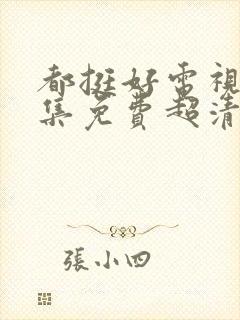 都挺好电視
集免費超清
張小四